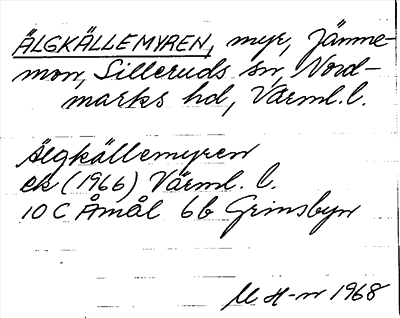 ÄLGKÄLLEMYREN, myr, Jämne-
mon, Silleruds sn, Nord-
marks hd, Värml. l.
Älgkällemyren
ek (1966) Värml. l.
10 C Åmål 6b Grinsbyn
M H-n 1968